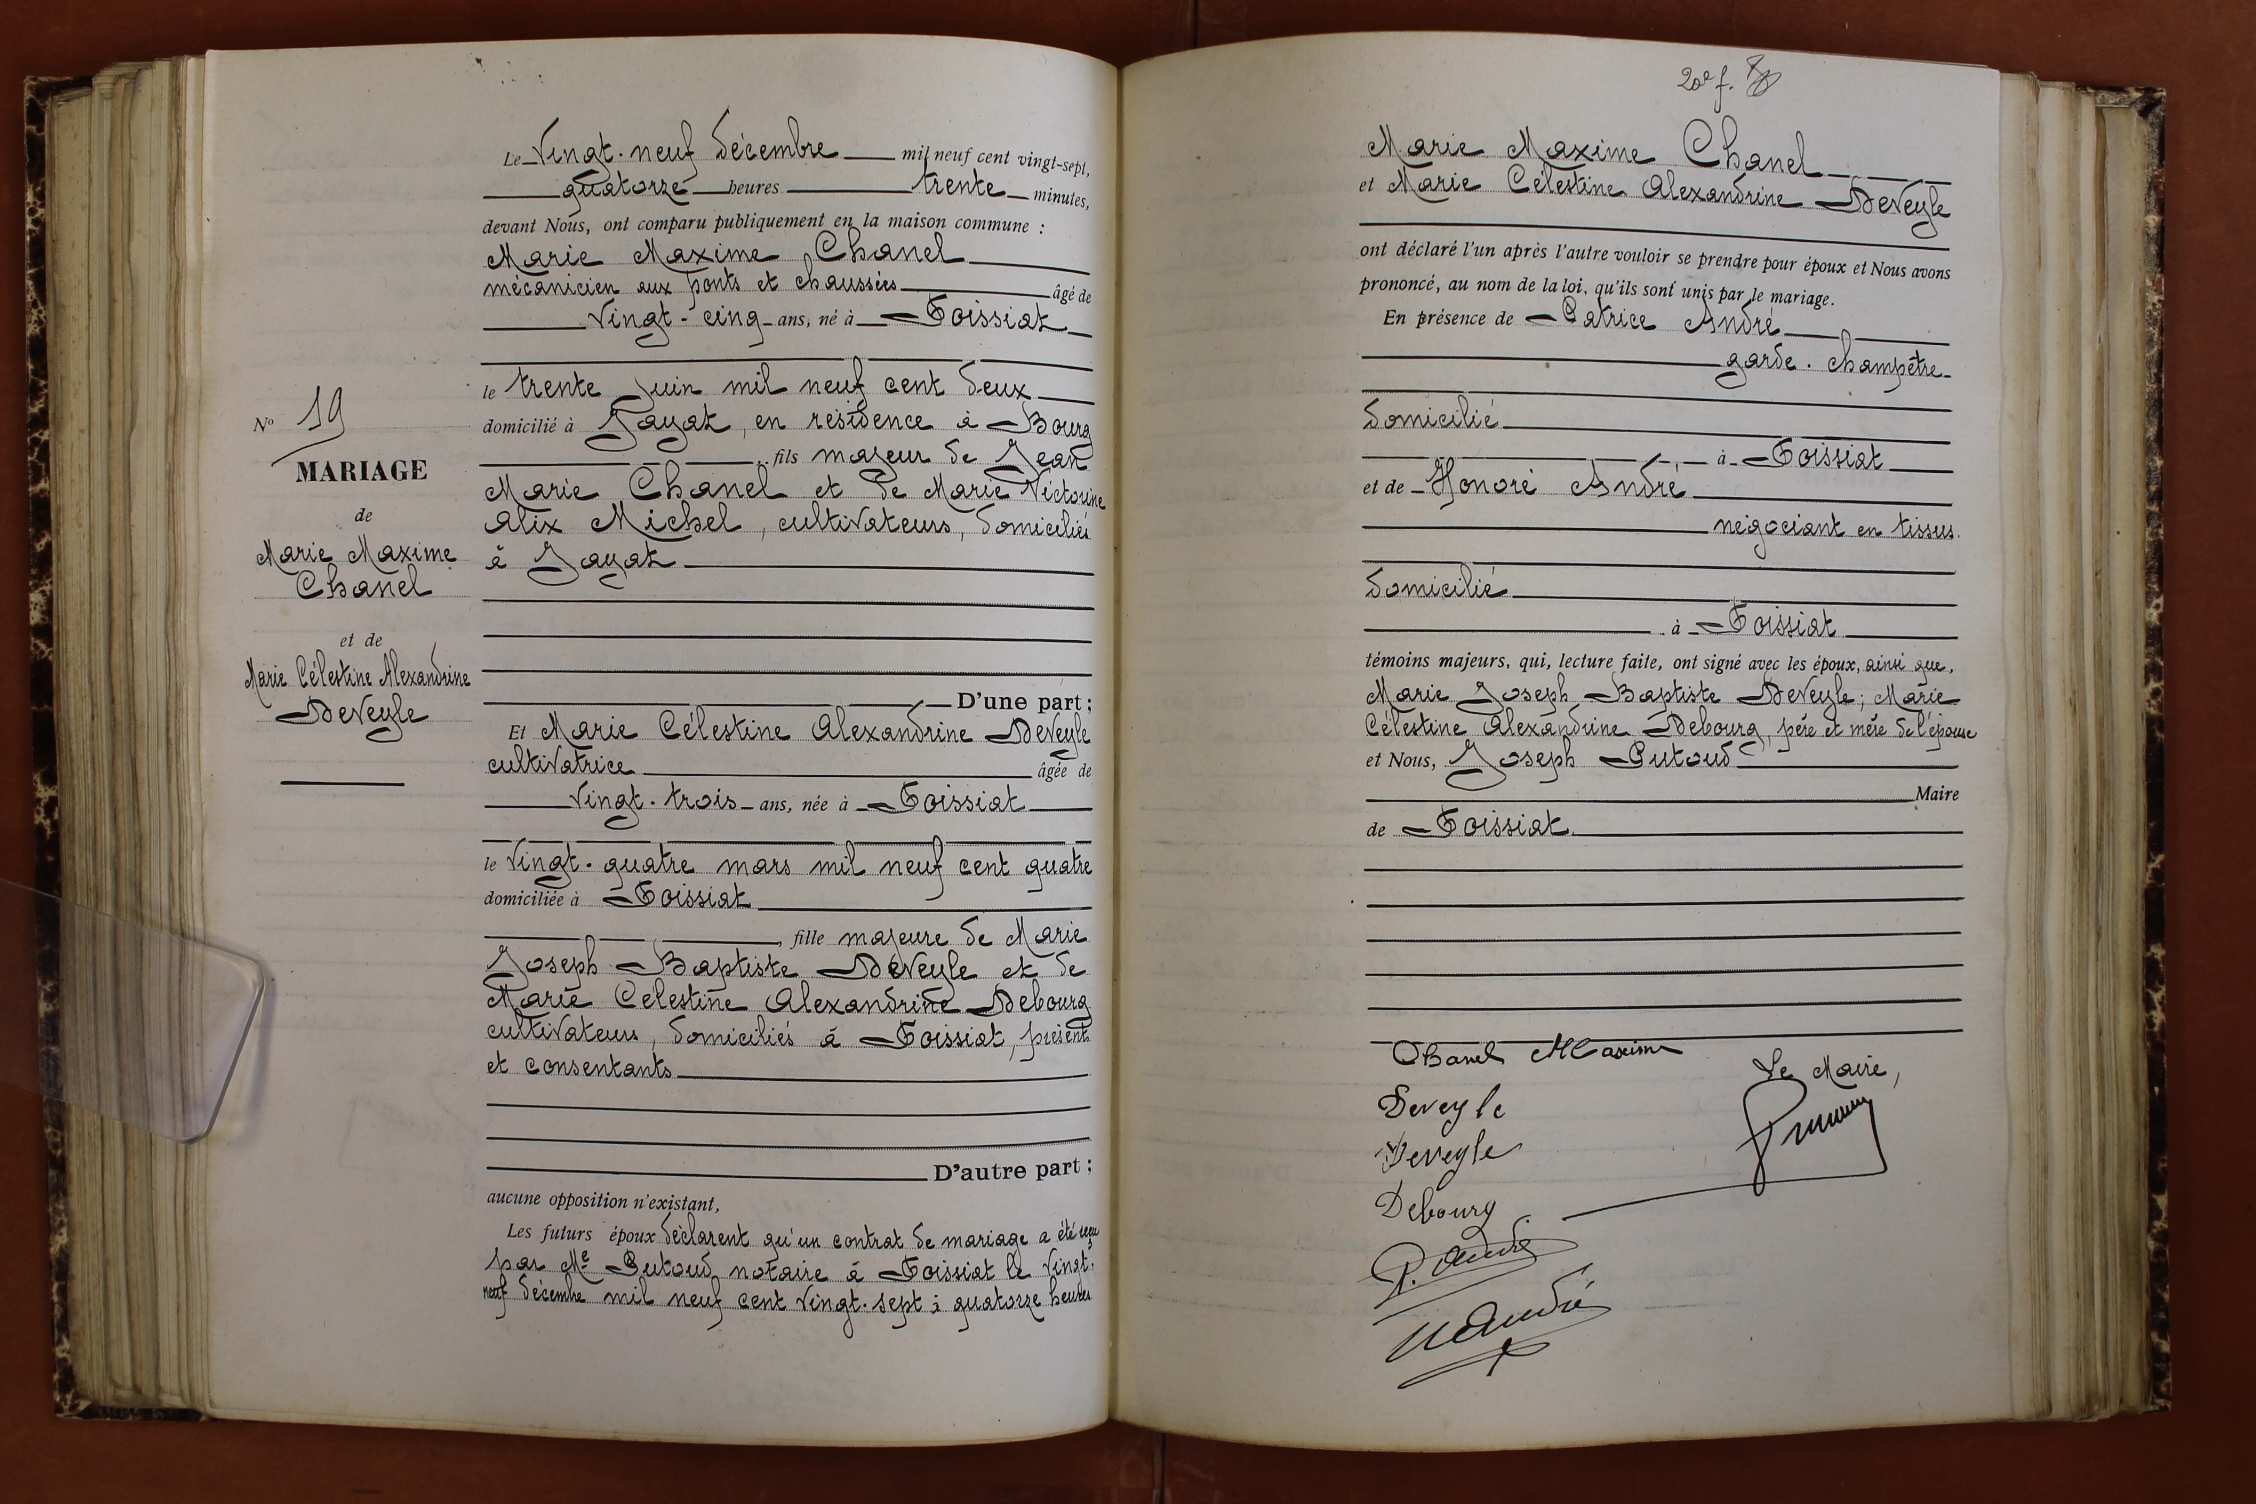 Le Vingt-neuf Décembre mil neuf cent vingt-sept,
quatorze heures trente minutes,
devant Nous, ont comparu publiquement en la maison commune :
Marie Maxime Chanel
mécanicien aux ponts et chaussées âgé de
vingt-cinq ans, né à Foissiat
le trente Juin mil neuf cent deux
domicilié à Jayat, en résidence à Bourg
fils majeur de Jean
Marie Chanel et de Marie Victorine
Alix Michel, cultivateurs, domiciliés
à Jayat
No 19
MARIAGE
de
Marie Maxime
Chanel
et de
Marie Célestine Alexandrine
Deveyle
D'une part ;
Et Marie Célestine Alexandrine Deveyle
cultivatrice âgée de
Vingt-trois ans, née à Foissiat
le Vingt-quatre mars mil neuf cent quatre
domiciliée à Foissiat
, fille majeure de Marie
Joseph Baptiste Deveyle et de
Marie Célestine Alexandrine Debourg
cultivateurs, domiciliés à Foissiat, présents
et consentants
D'autre part ;
aucune opposition n'existant,
Les futurs époux déclarent qu'un contrat de mariage a été reçu
par Me Putoud notaire à Foissiat le vingt-
neuf décembre mil neuf cent vingt-sept à quatorze heures
20e f.
Marie Maxime Chanel
et Marie Célestine Alexandrine Deveyle
ont déclaré l'un après l'autre vouloir se prendre pour époux et Nous avons
prononcé, au nom de la loi, qu'ils sont unis par le mariage.
En présence de Patrice André
garde-champêtre
domicilié
à Foissiat
et de Honoré André
négociant en tissus.
domicilié
à Foissiat
témoins majeurs, qui, lecture faite, ont signé avec les époux, ainsi que,
Marie Joseph Baptiste Deveyle ; Marie
Célestine Alexandrine Debourg, père et mère de l'épouse
et Nous, Joseph Putoud
Maire
de Foissiat
Chanel Maxime
Le Maire,
Deveyle
Deveyle
Debourg
P. André
H André